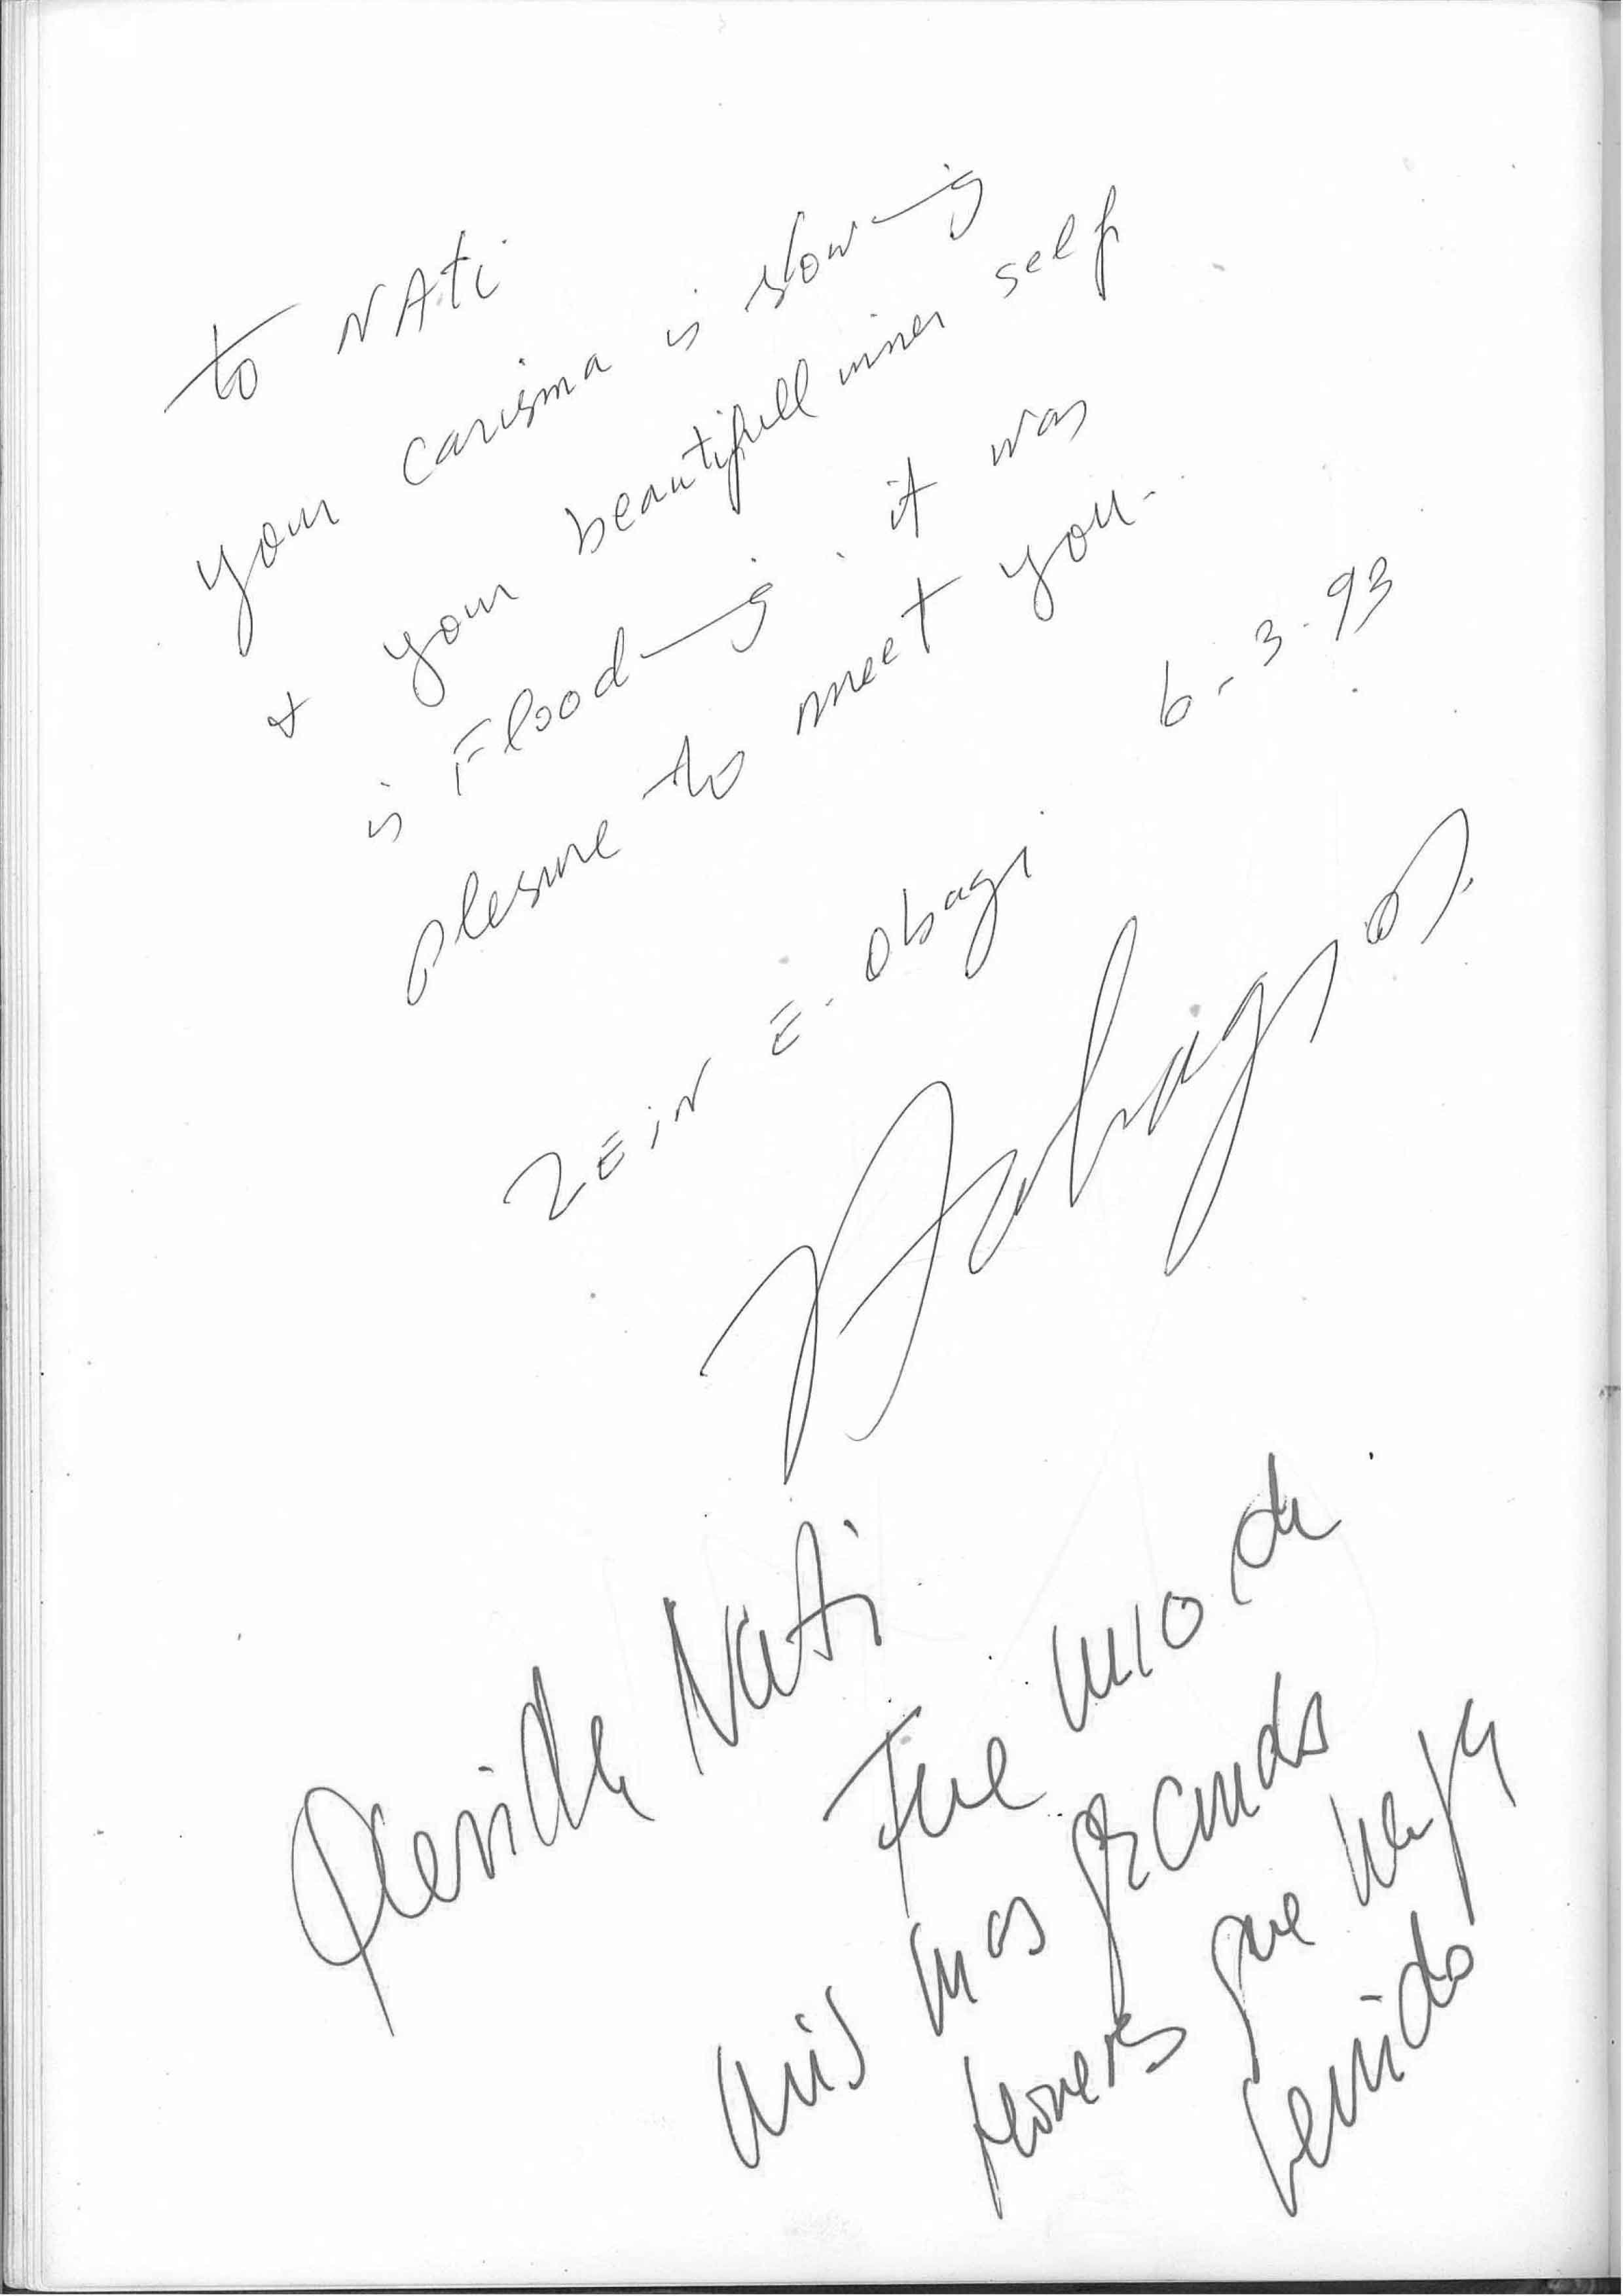 to NAti
your carisma is slowing
+ your beautifull inner self
is Flooding. it was
plesure to meet you..
6-3-93
ZEiN E. Obagi
Querida Nati
Fue uno de
mis mas grandes
que haya
tenido